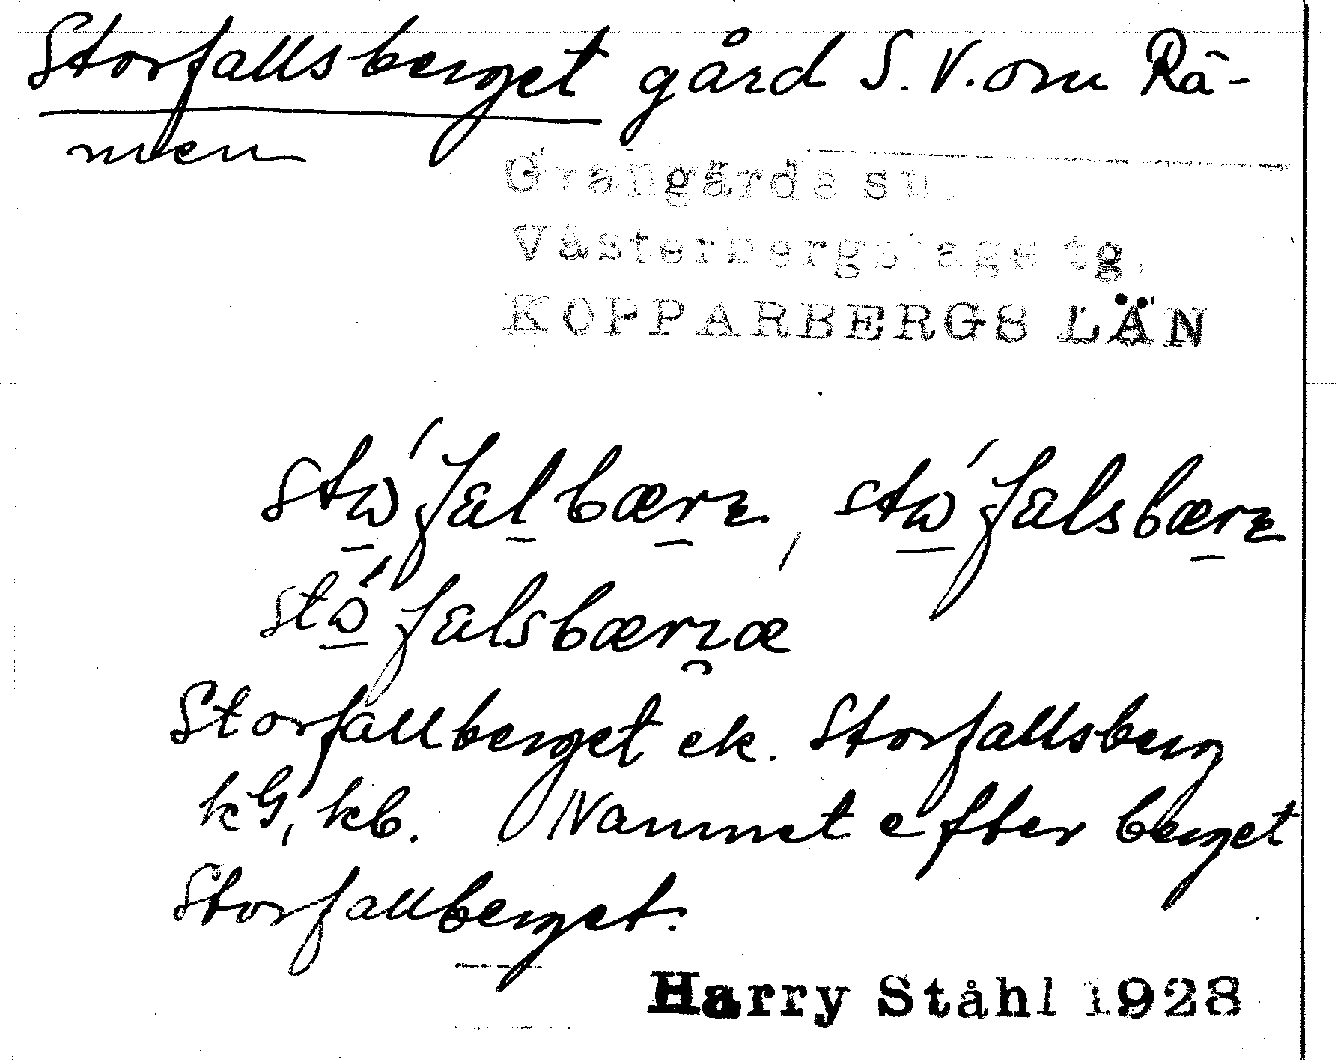 Storfallsberget gård S.V. om Rä-
men
Grangärde sn.
Västerbergslags tg.
KOPPARBERGS LÄN
Storfallberget ek. Storfallsberg
kG, kb. Namnet efter berget
Storfallberget.
Harry Ståhl 1928